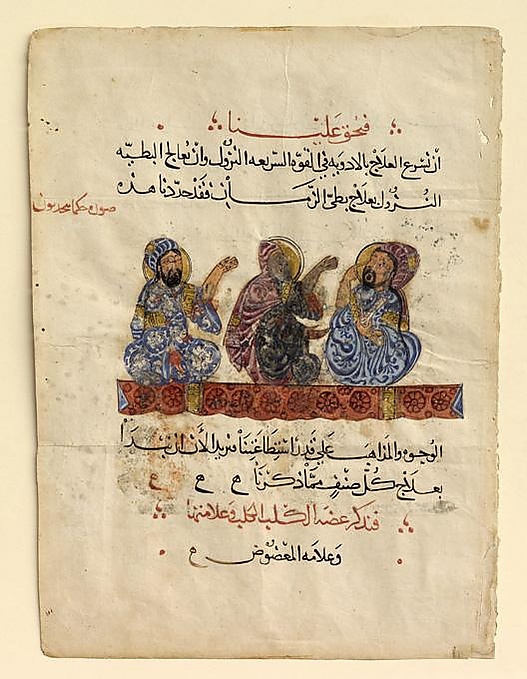 فيحق علينا
ان نسرع العلاج بالادويه في القوه السريعه النزول وان نعالج البطيه
النزول بعلاج بطي الزمان فقد حددنا هذه
صوره حكما يتحدثون
الوجوه والمذاهب على قدر استطاعتنا ونريد الان ان نبدا
بعلاج كل صنف مما ذكرنا
فنذكر عضه الكلب الكلب وعلامتها
وعلامه المعضوض